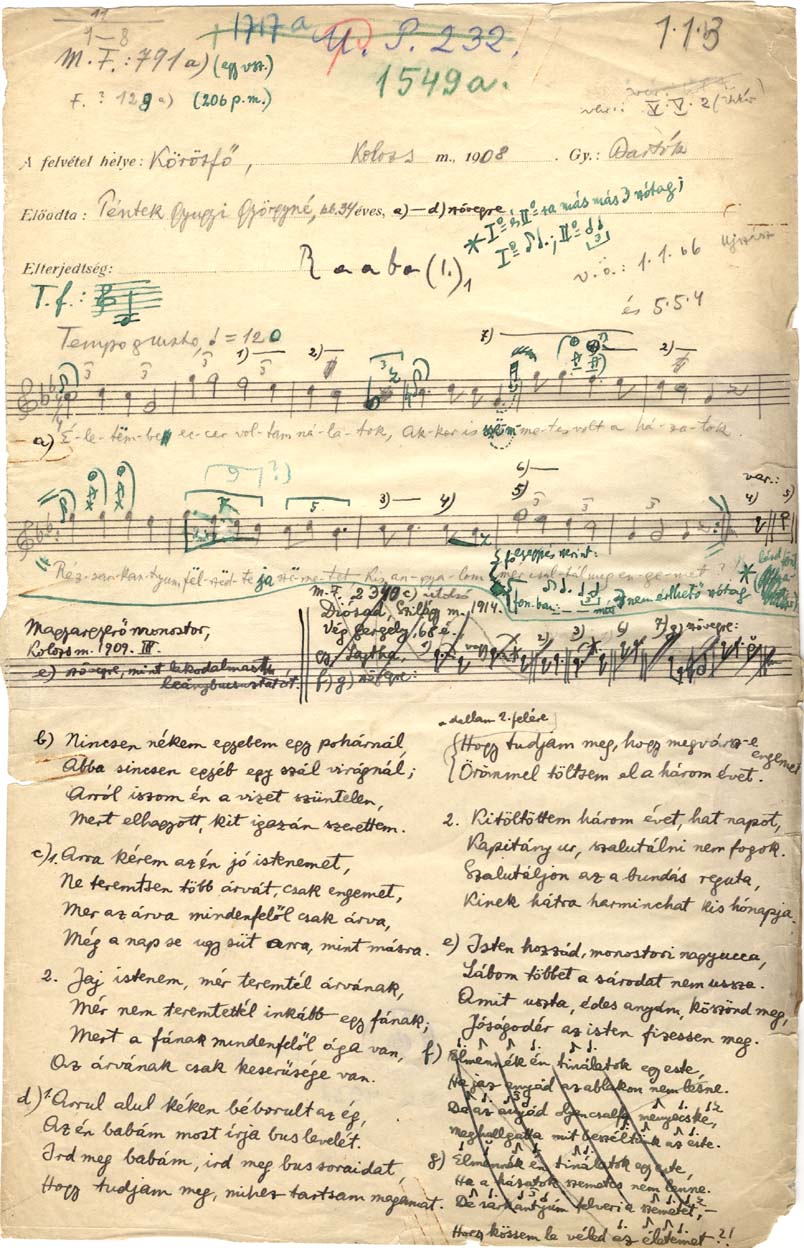 11
1–8
1717a
M. P. 232.
113
M.F.: 791a) (egy vsz.)
1549a.
F. 128 a) (206 p.m.)
var.: V. V. 2
A felvétel helye: Körösfő, Kolozs m., 1908. Gy.: Bartók
Előadta: Péntek Gyugyi Györgyné, kb. 34 éves, a)–d) szövegre
* I° és II°-ra más más 3 nótag;
Elterjedtség: R a a b a (1.)1
v.ö.: 1.1.66
és 5.5.4
T.f.:
Tempo giusto, = 120
1) 2) 7) 2)
a) É-le-tëm-be ec-cer vol-tam ná-la-tok, Ak-kor is szëm-me-tes volt a há-za-tok.
5 3) 4) 6) 5) var.: 4) 5)
Réz-sar-kan-tyum föl-szëd-te ja szë-me-tet Kis an-gya-lom
fon.-ban: nem érthető nótag
M.F. 2340 c) utolsó
Diósad, Szilágy m., 1914.
Vég Gergely, 68 é.
Magyargyerőmonostor,
Kolozs m. 1909. III.
e) szövegre, mint lakodalmas
leánybucsuztatót.
f) g) szövegre:
b) Nincsen nékem egyebem egy pohárnál,
Abba sincsen egyéb egy szál virágnál;
Arról iszom én a vizet szüntelen,
Mert elhagyott, kit igazán szerettem.
c) 1. Arra kérem az én jó istenemet,
Ne teremtsen több árvát, csak engemet,
Mer az árva mindenfelől csak árva,
Még a nap se ugy süt arra, mint másra.
2. Jaj istenem, mér teremtél árvának,
Mér nem teremtettél inkább egy fának;
Mert a fának mindenfelől ága van,
Az árvának csak keserüsége van.
d) 1. Arrul alul kéken béborult az ég,
Az én babám most irja bus levelét.
Ird meg babám, ird meg bus soraidat,
Hogy tudjam meg, mihez tartsam magamat.
a dallam 2. felére
Hogy tudjam meg, hogy megvársz-e engemet
Örömmel töltsem el a három évet.
2. Kitöltöttem három évet, hat napot,
Kapitány ur, szalutálni nem fogok.
Szalutáljon az a bundás reguta,
Kinek hátra harminchat kis hónapja.
e) Isten hozzád, monostori nagyucca,
Lábom többet a sárodat nem ussza.
Amit uszta, édes anyám, köszönd meg,
Jóságodér az isten fizessen meg.
f) Elmennék én tinálatok egy este,
Ha jaz anyád az ablakon nem lesne.
De az anyád olyan csalfa menyecske,
Meghallgatta mit beszéltünk az este.
g) Elmennék én tinálatok egy este,
Ha a házatok szemetes nem lenne.
De sarkantyúm felveri a szemetet,
Hogy kössem le véled az életemet?!